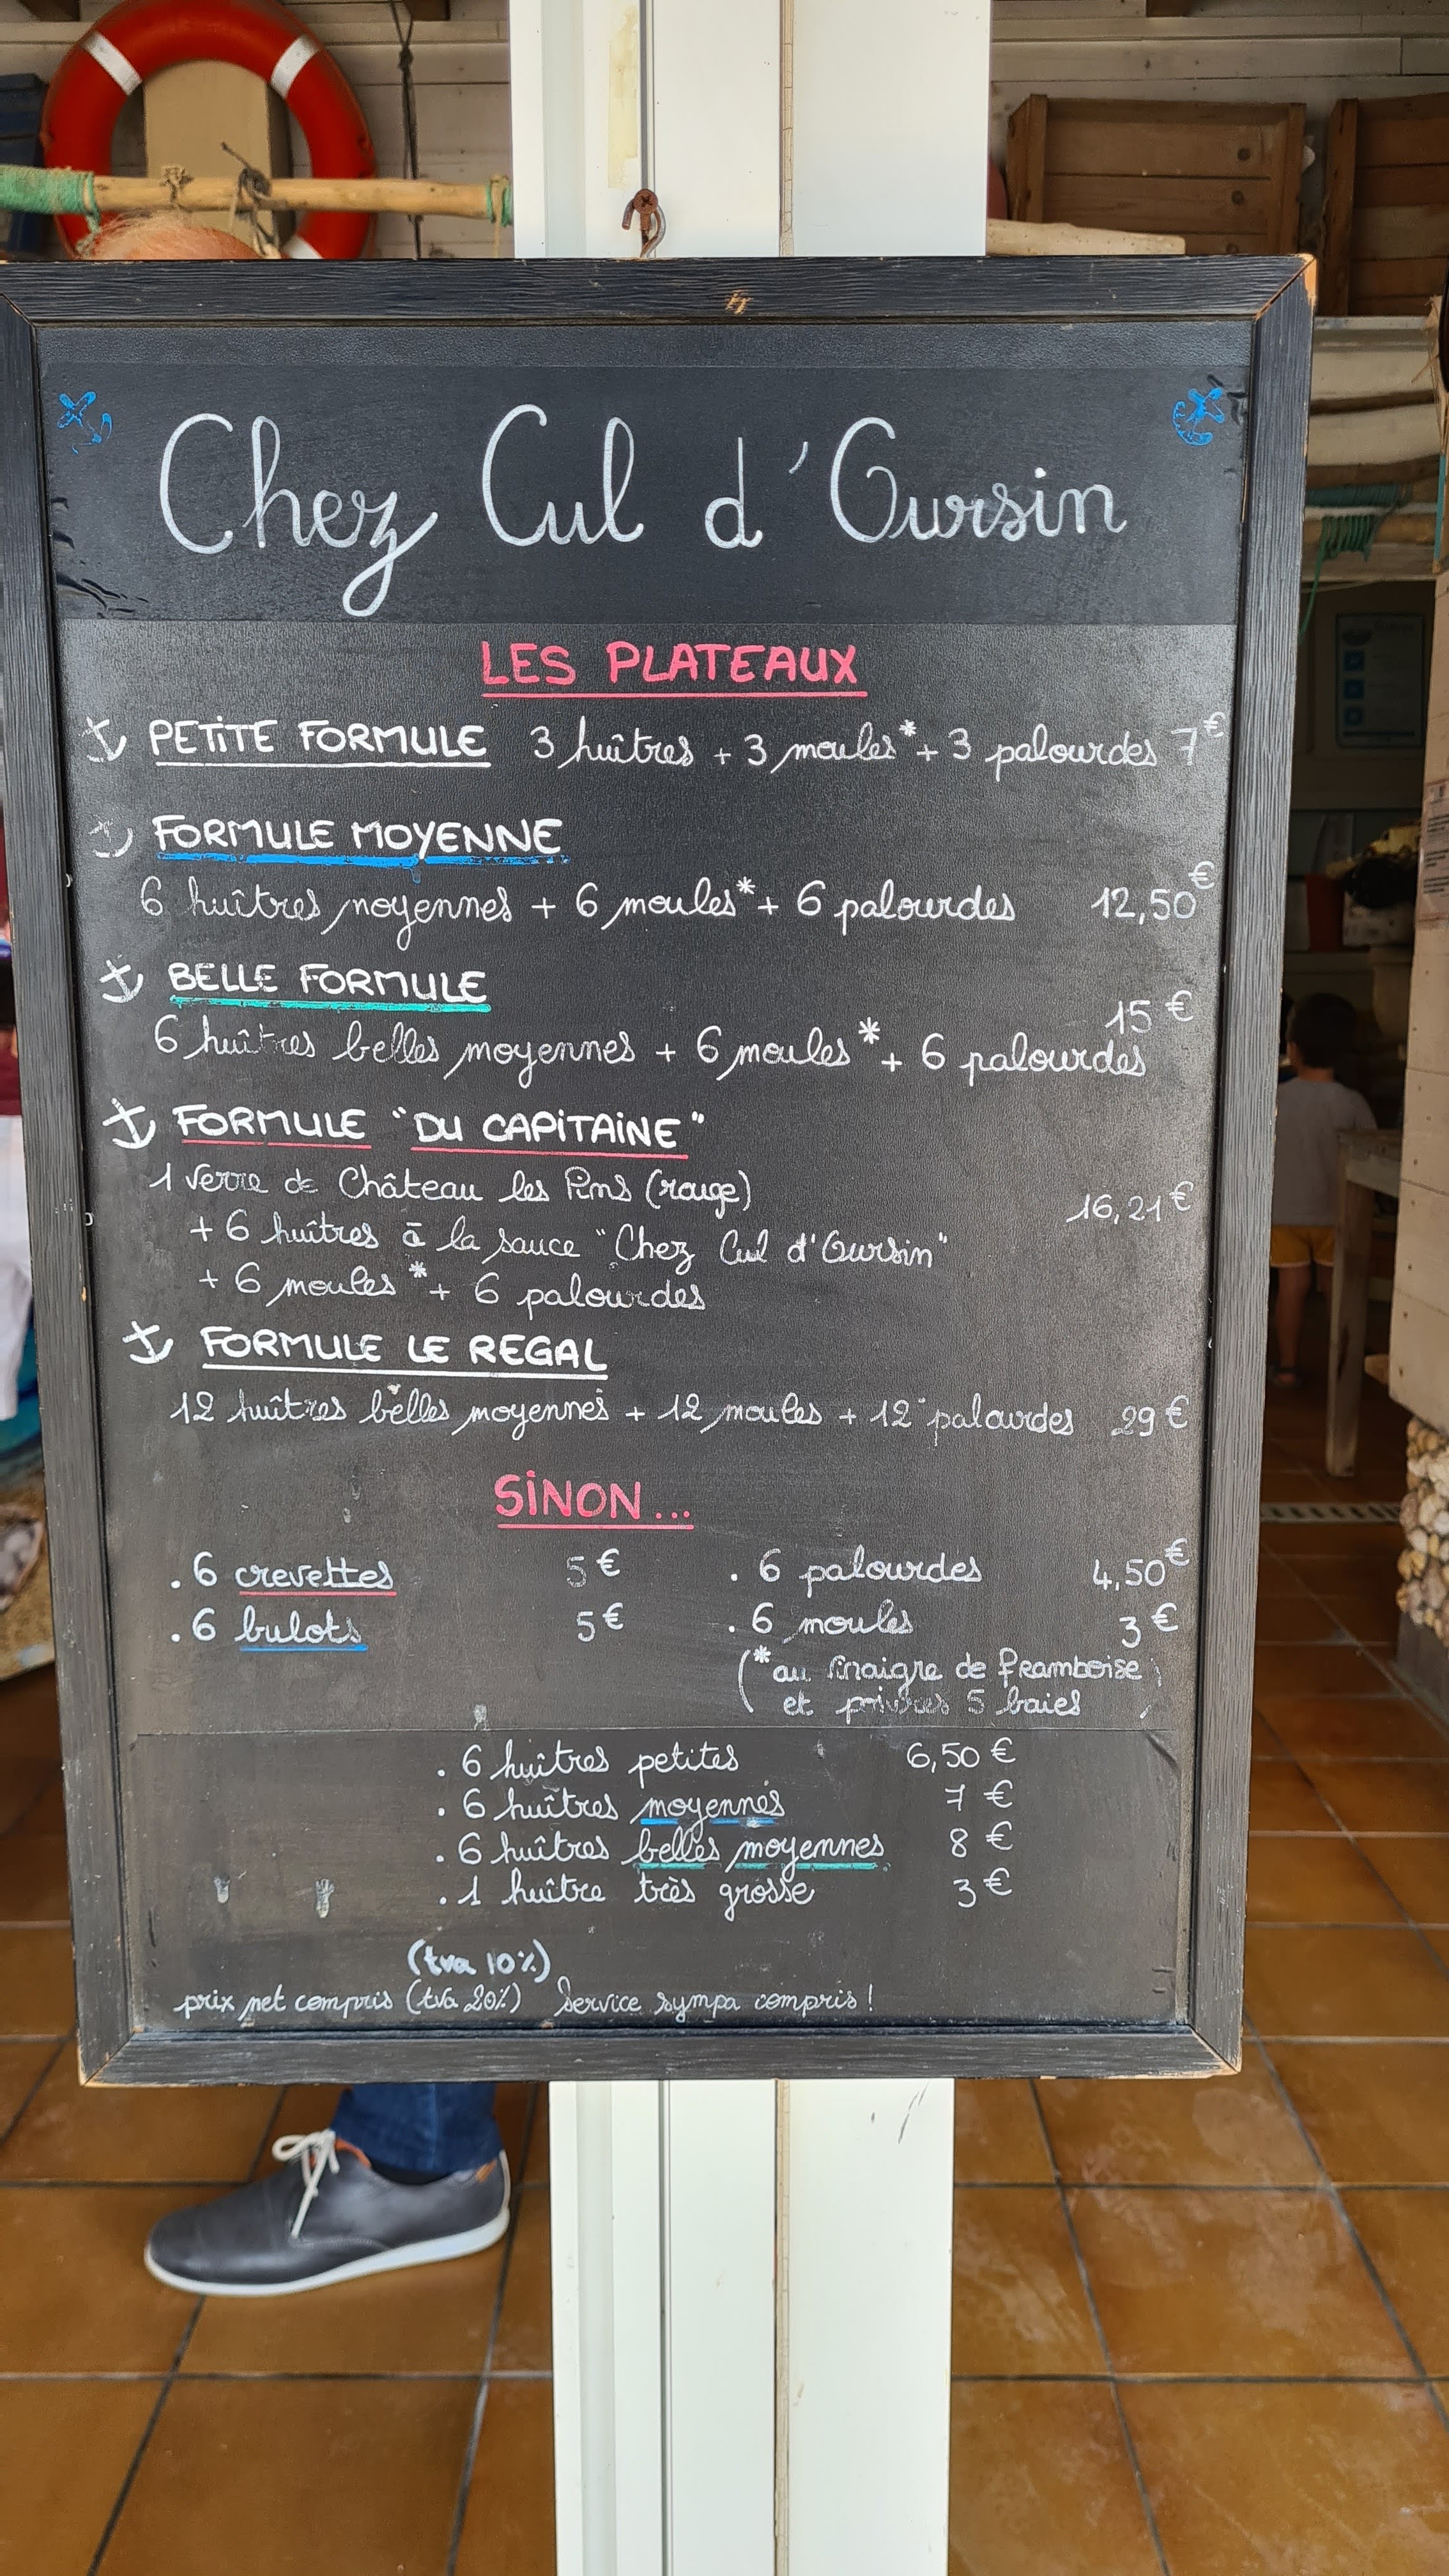 Chez Cul d'Oursin
LES PLATEAUX
PETITE FORMULE 3 huîtres + 3 moules* + 3 palourdes 7€
FORMULE MOYENNE
6 huîtres moyennes + 6 moules* + 6 palourdes 12,50€
BELLE FORMULE
15 €
6 huîtres belles moyennes + 6 moules* + 6 palourdes
FORMULE "DU CAPITAINE"
1 verre de Château les Pins (rouge)
16,21€
+ 6 huîtres à la sauce "Chez Cul d'Oursin"
+ 6 moules* + 6 palourdes
FORMULE LE REGAL
12 huîtres belles moyennes + 12 moules + 12 palourdes 29 €
SINON...
. 6 crevettes 5 € . 6 palourdes 4,50€
. 6 bulots 5 € . 6 moules 3 €
(*au vinaigre de framboise
et poivres 5 baies
. 6 huîtres petites 6,50 €
. 6 huîtres moyennes 7 €
. 6 huîtres belles moyennes 8 €
. 1 huître très grosse 3 €
(tva 10%)
prix net compris (tva 20%) Service sympa compris !